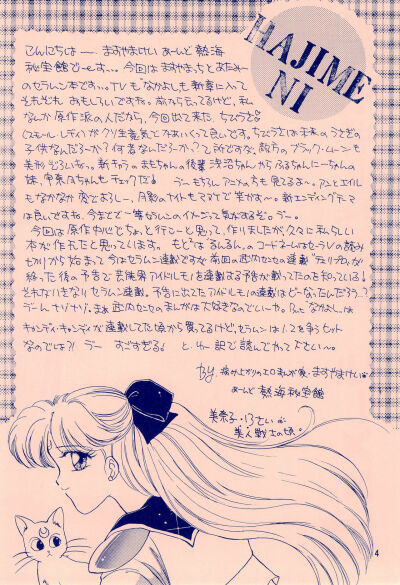 HAJIME
NI
こんにちはー ますやまけい あーんど 熱海
秘宝館でーす…。今回は ますやまっちと あたみーの
セラムン本です…。TVも なかよしも 新章に入って
それぞれ おもしろいですね。前からそうだけど、私
なんか 原作派の人だから、今回出て来た、ちびうさ
(スモール・レディ)が クソ生意気で かあいくって良いです。ちびうさは 未来の うさぎの
子供なんだーうか?何者なんだーうか?って所ですな。敵方の ブラック・ムーンも
美形ぞろいねっ。新キャラの まもちゃんの 後輩 浅沼ちゃんから ふるちゃんにーちゃんの
妹、宇奈月ちゃんも チェックだ! うー もちろん アニメの方も 見てるよ〜。アンと エイル
もなかなか 変でよし〜、月影のナイトも マヌケで 幸がす〜。新エンディングテーマ
は良いですね。今までで 一番かな〜んの イメージって気がするぞ。うー。
今回は 原作中心で ちょっと 行こーと 思って、作りましたが、久々に 私らしい
本が作れたと思っています。もともと るんるん の コードネームはセーラVの読み
切りから 始まって 今はセーラムン連載ですが 前回の 武内センセの連載「チェリプロ」が
終った後の予告で 芸能界アイドルモノを連載する予告が載ってたのを知っている!
それがいきなり セーラムン連載。予告に出てた アイドルモノの連載は どーなったんだろう…?
うーん ナゾナゾ。まあ 武内センセの まんがは 大好きなんでいーや。 なかよしは
キャンディ・キャンディが 連載してた頃から 買ってるけど、セラムンは 1.2を争う ヒット
なのでは?! うー すごすぎる! と、いう訳で 読んでやって下さい〜。
by. 病み上がりの エロまんが家・ますやまけい
あーんど 熱海秘宝館
美奈子・13さい
美人戦士の頃。
4